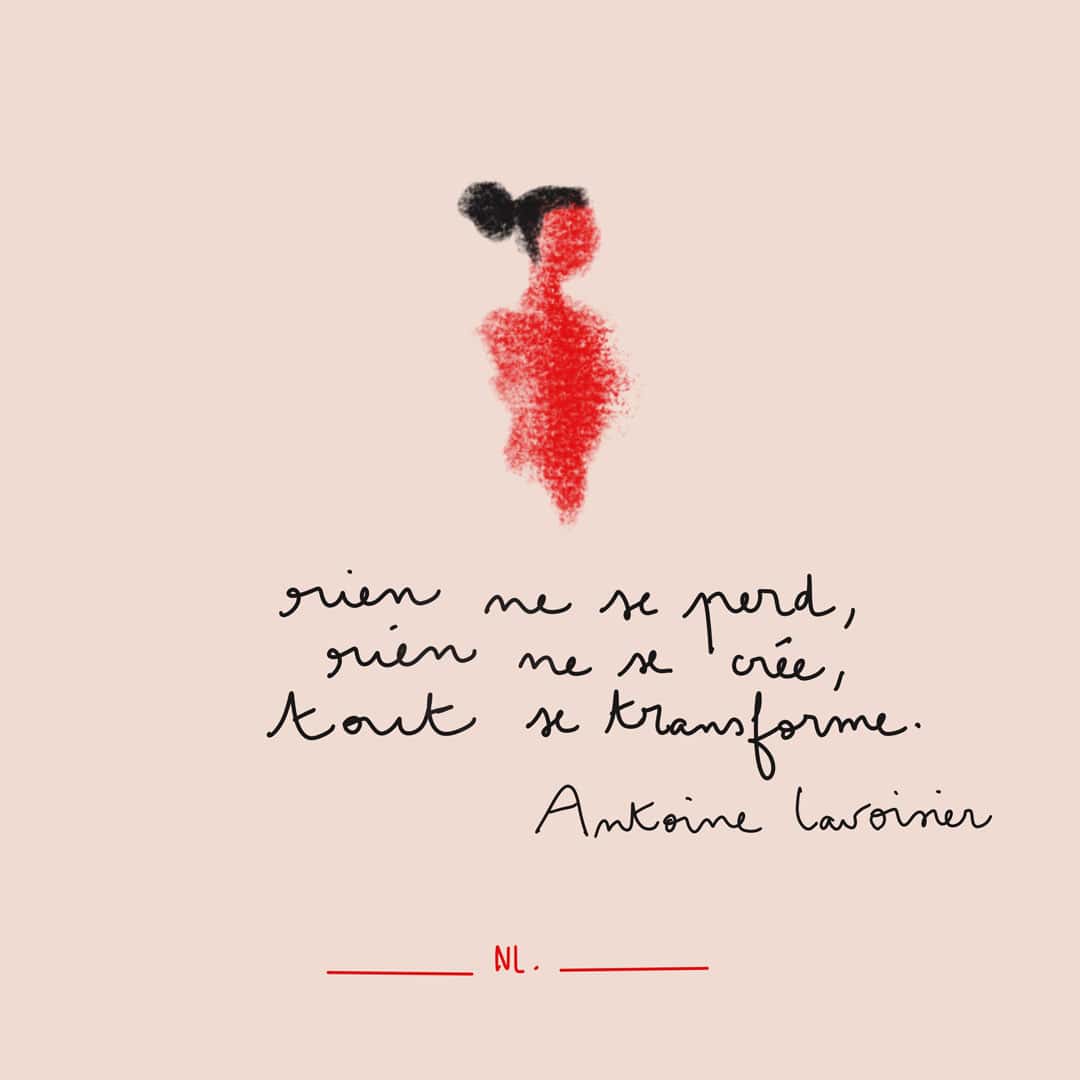 rien ne se perd,
rien ne se crée,
tout se transforme.
Antoine Lavoisier
NL.